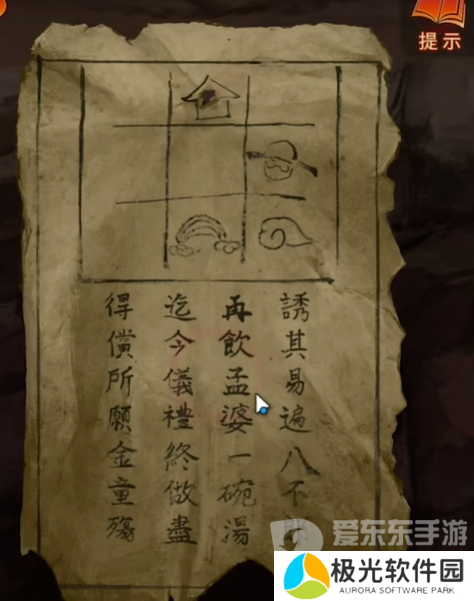 提示
誘其易遍八不
再飲孟婆一碗湯
迄今儀禮終做盡
得償所願金童殤
爱东东手游
极光软件园
AURORA SOFTWARE PARK